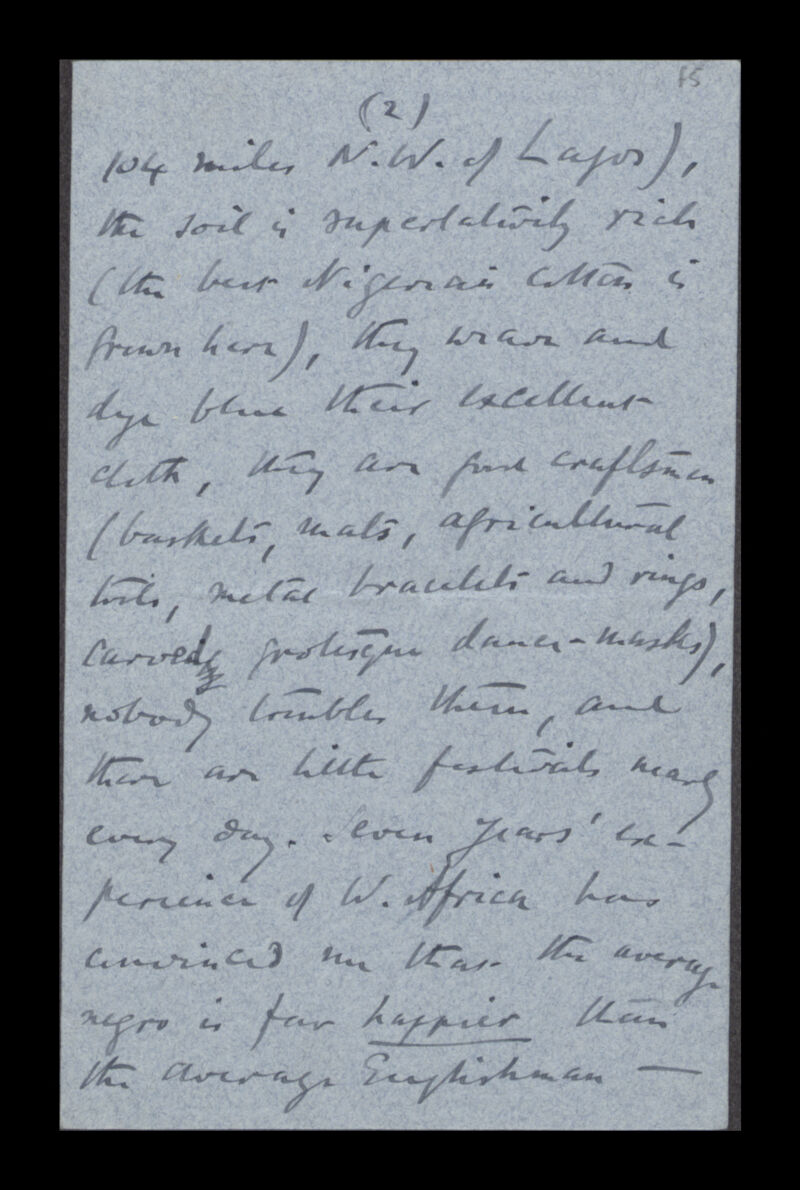 85
(2)
104 miles N.W. of Lagos),
the soil is superlatively rich
(the best Nigerian cotton is
grown here), they weave and
dye blue their excellent
cloth, they are good craftsmen
(baskets, mats, agricultural
tools, metal bracelets and rings,
carved grotesque dance-masks),
nobody troubles them, and
there are little festivals nearly
every day. Seven years' ex-
perience of W. Africa has
convinced me that the average
negro is far happier than
the average Englishman —